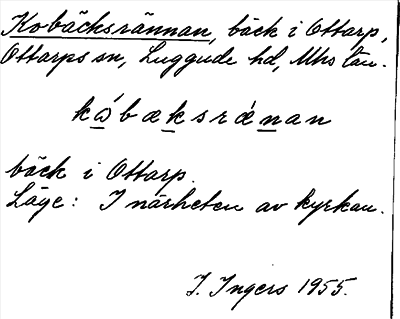 Kobäcksrännan, bäck i Ottarp,
Ottarps sn, Luggude hd, Mhs län.
kώbæksrǽnan
bäck i Ottarp.
Läge: I närheten av kyrkan.
I. Ingers 1955.